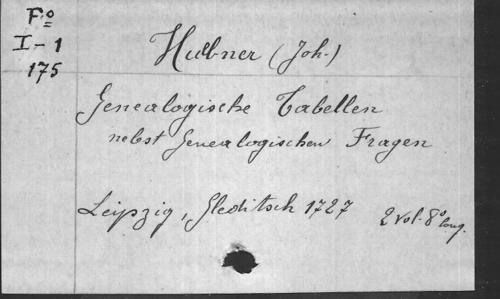 Fº
I-1
175
Hubner (Joh.)
Genealogische Tabellen
nebst Genealogischen Fragen
Leipzig, Gleditsch 1727
2 vol. 8º long.